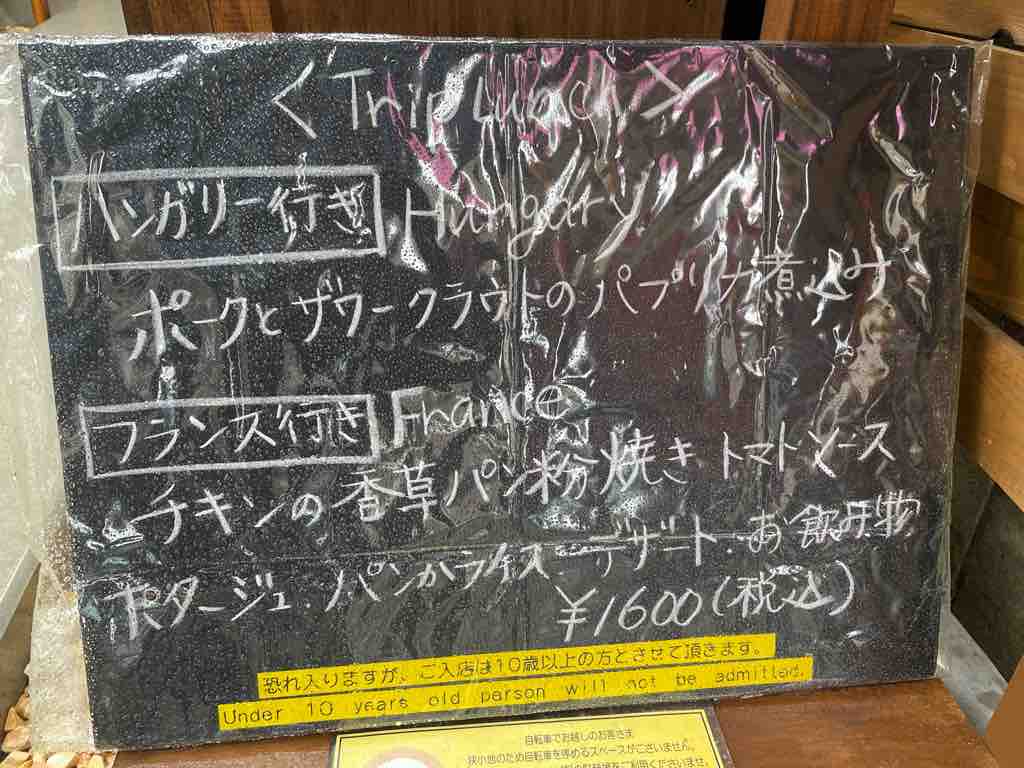 < Trip Lunch >
ハンガリー行き Hungary
ポークとザワークラウトのパプリカ煮込み
フランス行き France
チキンの香草パン粉焼き トマトソース
ポタージュ・パンかライス・デザート・お飲み物
¥1600(税込)
恐れ入りますが、ご入店は10歳以上の方とさせて頂きます。
Under 10 years old person will not be admitted.
自転車でお越しのお客さま
狭小地のため自転車を停めるスペースがございません。
をご利用くださいませ。